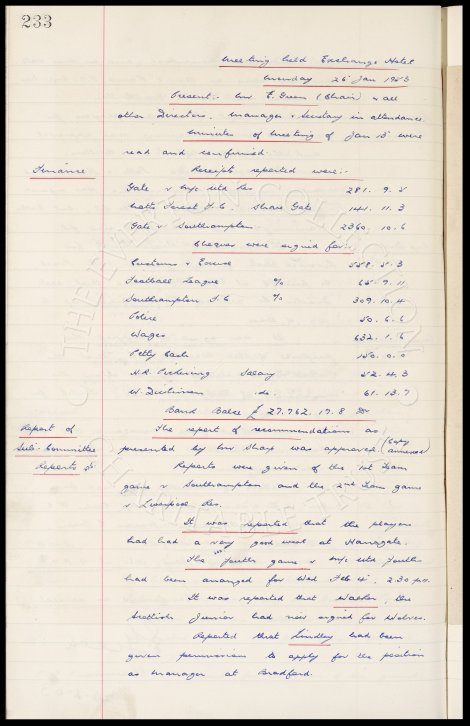 233
Meeting held Exchange Hotel
Monday 26 Jan 1953
Present:- Mr E. Green (Chair) & all
other Directors. Manager & Secretary in attendance
Minutes of Meeting of Jan 13 were
read and confirmed.
Finance
Receipts reported were:-
Gate v M/c Utd Res 281. 9.
Notts Forest F.C. Share Gate 141. 11. 3
Gate v Southampton 2360. 10. 6
Cheques were signed for:-
Customs & Excise 558. 5. 3
Football League % 65. 9. 11
Southampton F.C. % 309. 10. 4
Police 50. 6. 6
Wages 632. 1. 6
Petty Cash 150. 0. 0
H.R. Pickering Salary 52. 4. 3
W. Dickinson do. 61. 13. 7
Bank Balce £ 27,762. 17. 8
Report of
Sub-Committee
Reports
The report of recommendations as
presented by Mr Sharp was approved (Copy
annexed)
Reports were given of the 1st Team
game v Southampton and the 2nd Team game
v Liverpool Res.
It was reported that the players
had had a very good week at Harrogate.
The Youth game v M/c Utd Youth
had been arranged for Wed Feb 4. 2.30 pm.
It was reported that Walker, the
Scottish Junior had now signed for Wolves.
Reported that Lindley had been
given permission to apply for the position
as Manager at Bradford.
THE EVERTON COLLECTION
CHARITABLE TRUST